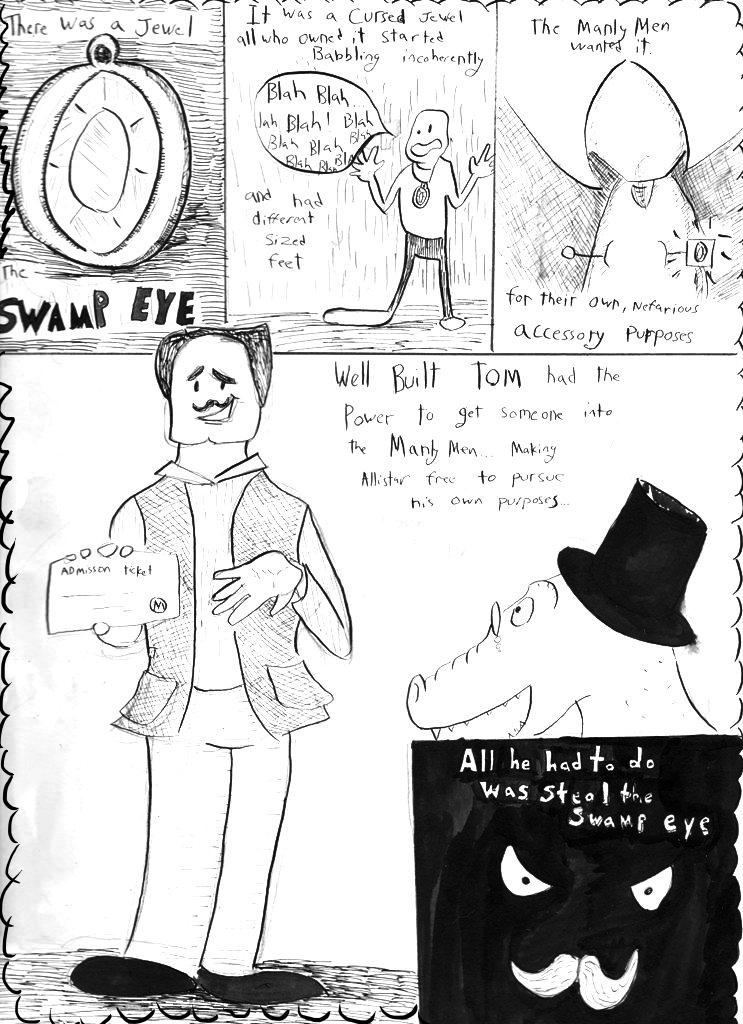 There was a Jewel
The
SWAMP EYE
It was a Cursed Jewel
all who owned it started
Babbling incoherently
Blah Blah..
lah Blah! Blah
Blah Blah Blah
Blah Blah Bla
and had
different
sized
feet
The Manly Men
wanted it.
for their own, Nefarious
accessory purposes
Well Built Tom had the
Power to get someone into
the Manly Men... Making
Allistar free to pursue
his own purposes...
ADmission ticket
M
All he had to do
was steal the
Swamp eye